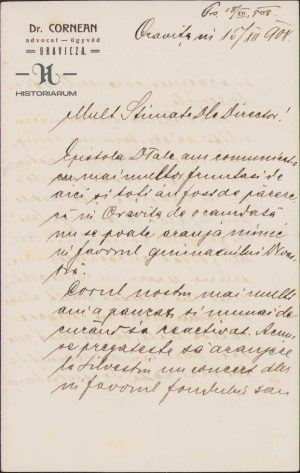 Dr. CORNEAN
advocat — ügyvéd
ORAVICZA.
HISTORIARUM
Oravița în 15/XII 904.
Mult Stimate Dle Director!
Epistola D-Tale am comunicat-o
cu mai mulți fruntași de
aici și toți au fost de părere,
că în Oravița de o camdată
nu se poate aranja nimic
în favorul gimnaziului
Corul nostru mai mulți
ani a pauzat și numai de
curând s'a reactivat. Acum
se pregătește să aranjeze
la Silvestru un concert
în favorul fondului său